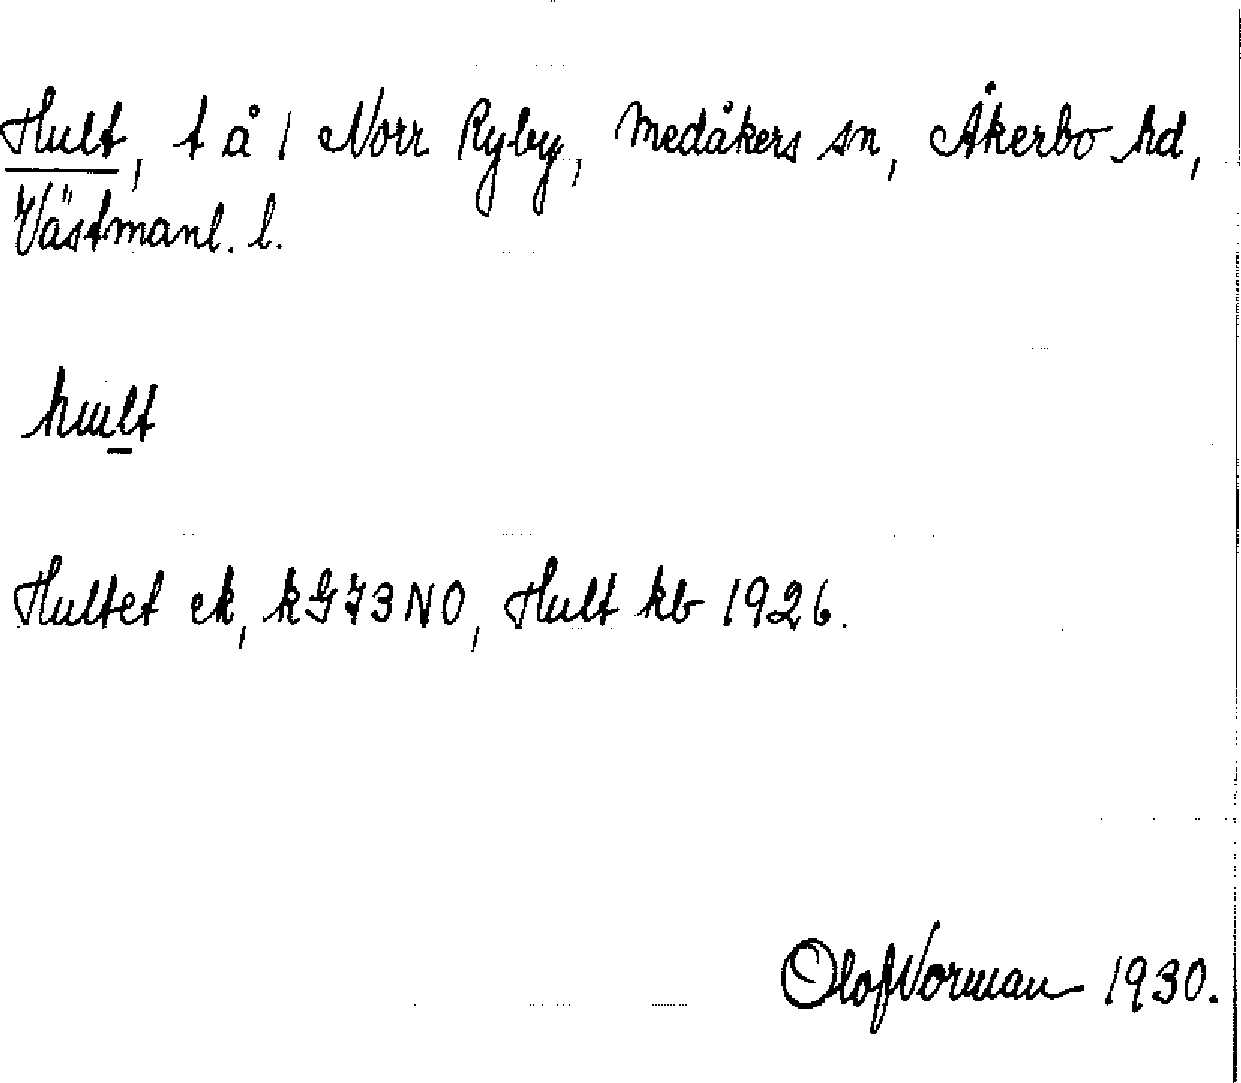 Hult, t å 1 Norr Ryby, Medåkers sn, Åkerbo hd,
Västmanl. l.
hult
Hultet ek, kGJ3NO, Hult kb 1926.
Olof Norman 1930.